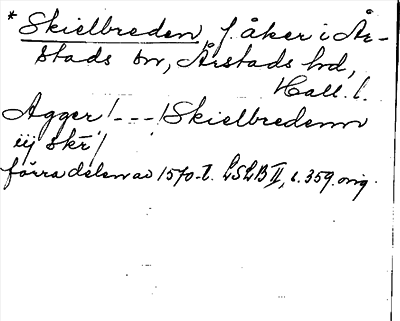 * Skielbreden, f. åker i År-
stads sn, Årstads hd,
Hall. l.
Agger /---/ Skielbredenn
iij skr /
förra delen av 1570-t. LSLB II, s. 359. orig.